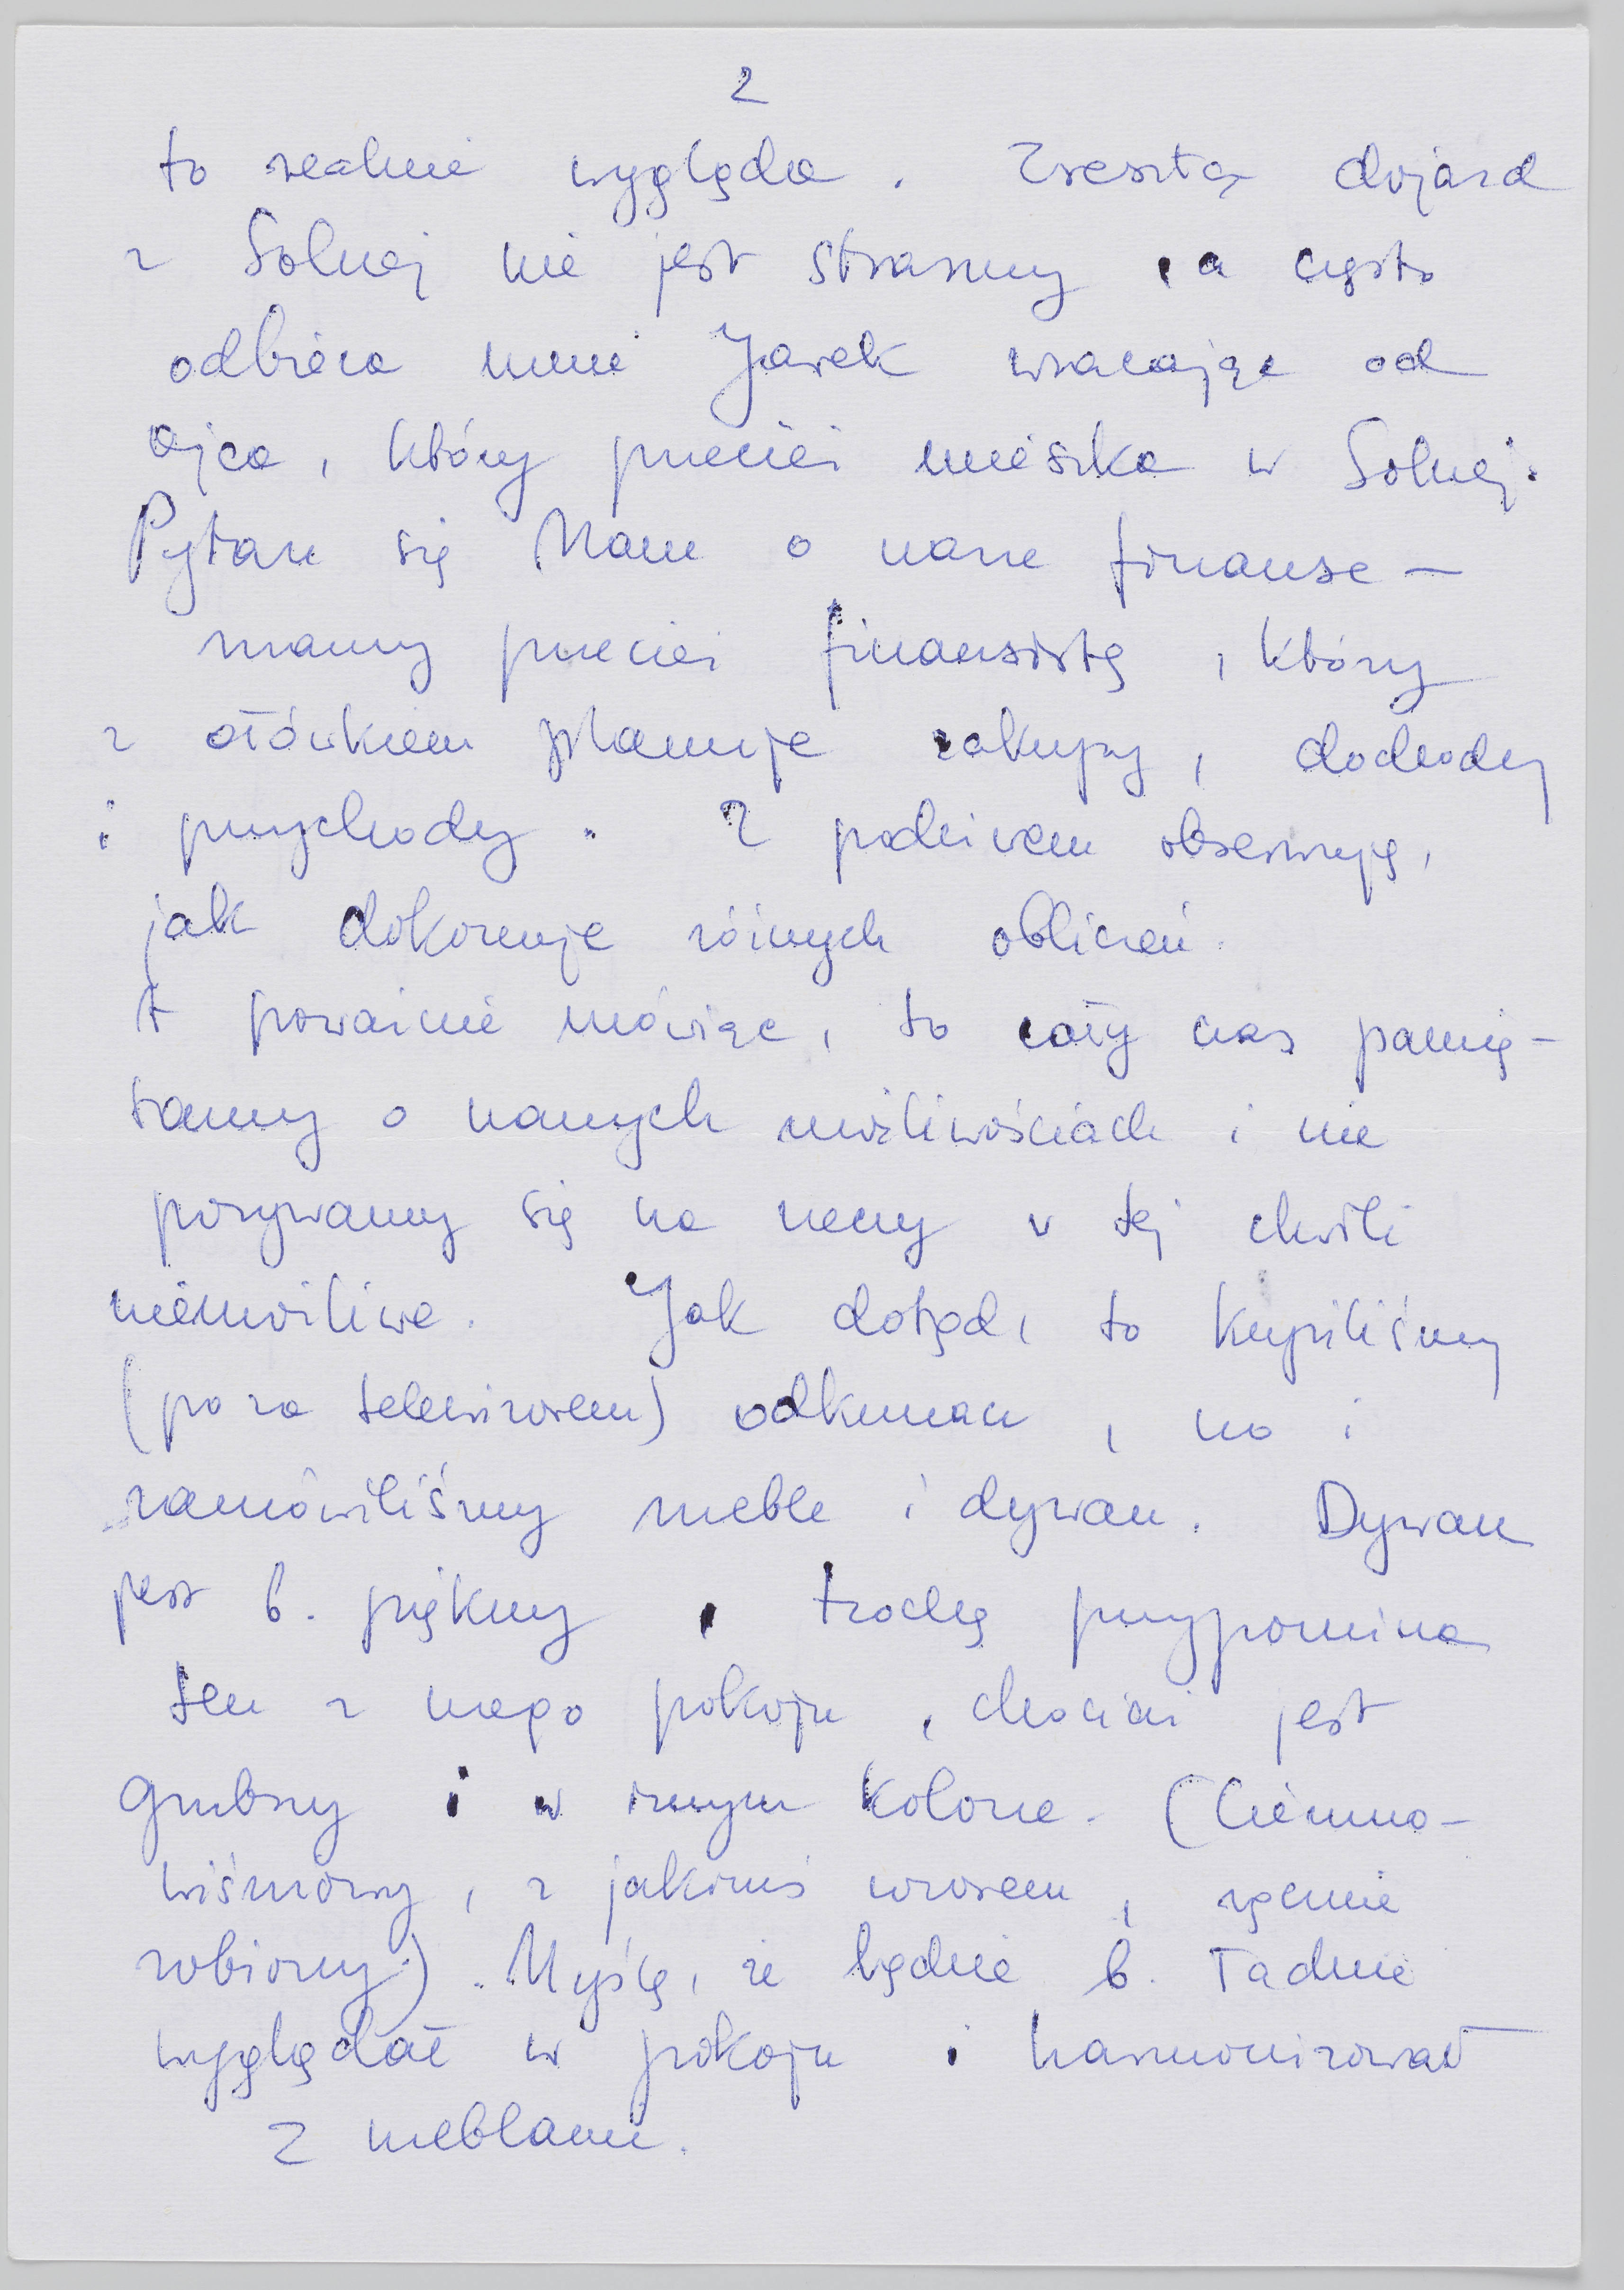 2
to realnie wygląda. Zresztą dojazd
z Solnej nie jest straszny, a często
odbiera mnie Jarek wracając od
ojca, który przecież mieszka w Solnej.
Pytasz się Mamo o nasze finanse –
mamy przecież finansistę, który
z ołówkiem planuje zakupy, dochody
i przychody. Z podziwem obserwuję,
jak dokonuje różnych obliczeń.
A poważnie mówiąc, to cały czas pamię-
tamy o naszych możliwościach i nie
porywamy się na rzeczy w tej chwili
niemożliwe. Jak dotąd, to kupiliśmy
(poza telewizorem) odkurzacz, no i
zamówiliśmy meble i dywan. Dywan
jest b. piękny, trochę przypomina
ten z mego pokoju, chociaż jest
grubszy i w innym kolorze. (Ciemno-
wiśniowy, z jakimś wzorem, ręcznie
robiony). Myślę, że będzie b. ładnie
wyglądał w pokoju i harmonizował
z meblami.